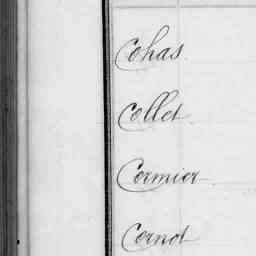 Cohas.
Collet
Cormier
Cornot